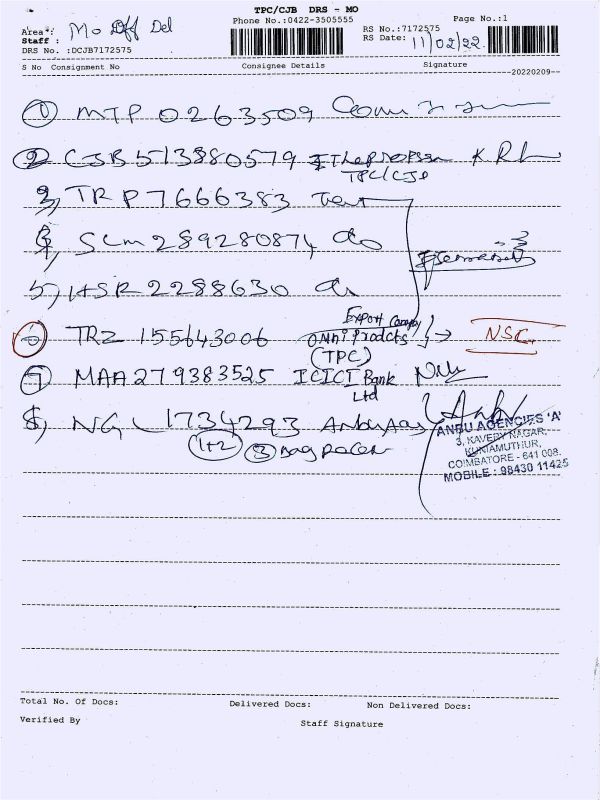 TPC/CJB DRS - MO
Phone No.:0422-3505555
Page No.:1
Area :
Staff :
Mo Off Del
DRS No. :DCJB7172575
RS No.:7172575
RS Date: 11/02/22.
S No Consignment No Consignee Details Signature
20220209
1 MTP 0263509
2 CJB 513880579
TPC/CJB
3, TRP 7666383
4, SLM 289280874 do
5, HSR 2288630 do
6 TRZ 155643006 Export Company Omni Prodcts NSC
(TPC)
7 MAA 279383525 ICICI Bank
Ltd
8, NGL 1734293
1+2 3
ANBU AGENCIES 'A'
3, KAVERY NAGAR,
KUNIAMUTHUR,
COIMBATORE - 641 008.
MOBILE : 98430 11425
Total No. Of Docs: Delivered Docs: Non Delivered Docs:
Verified By Staff Signature